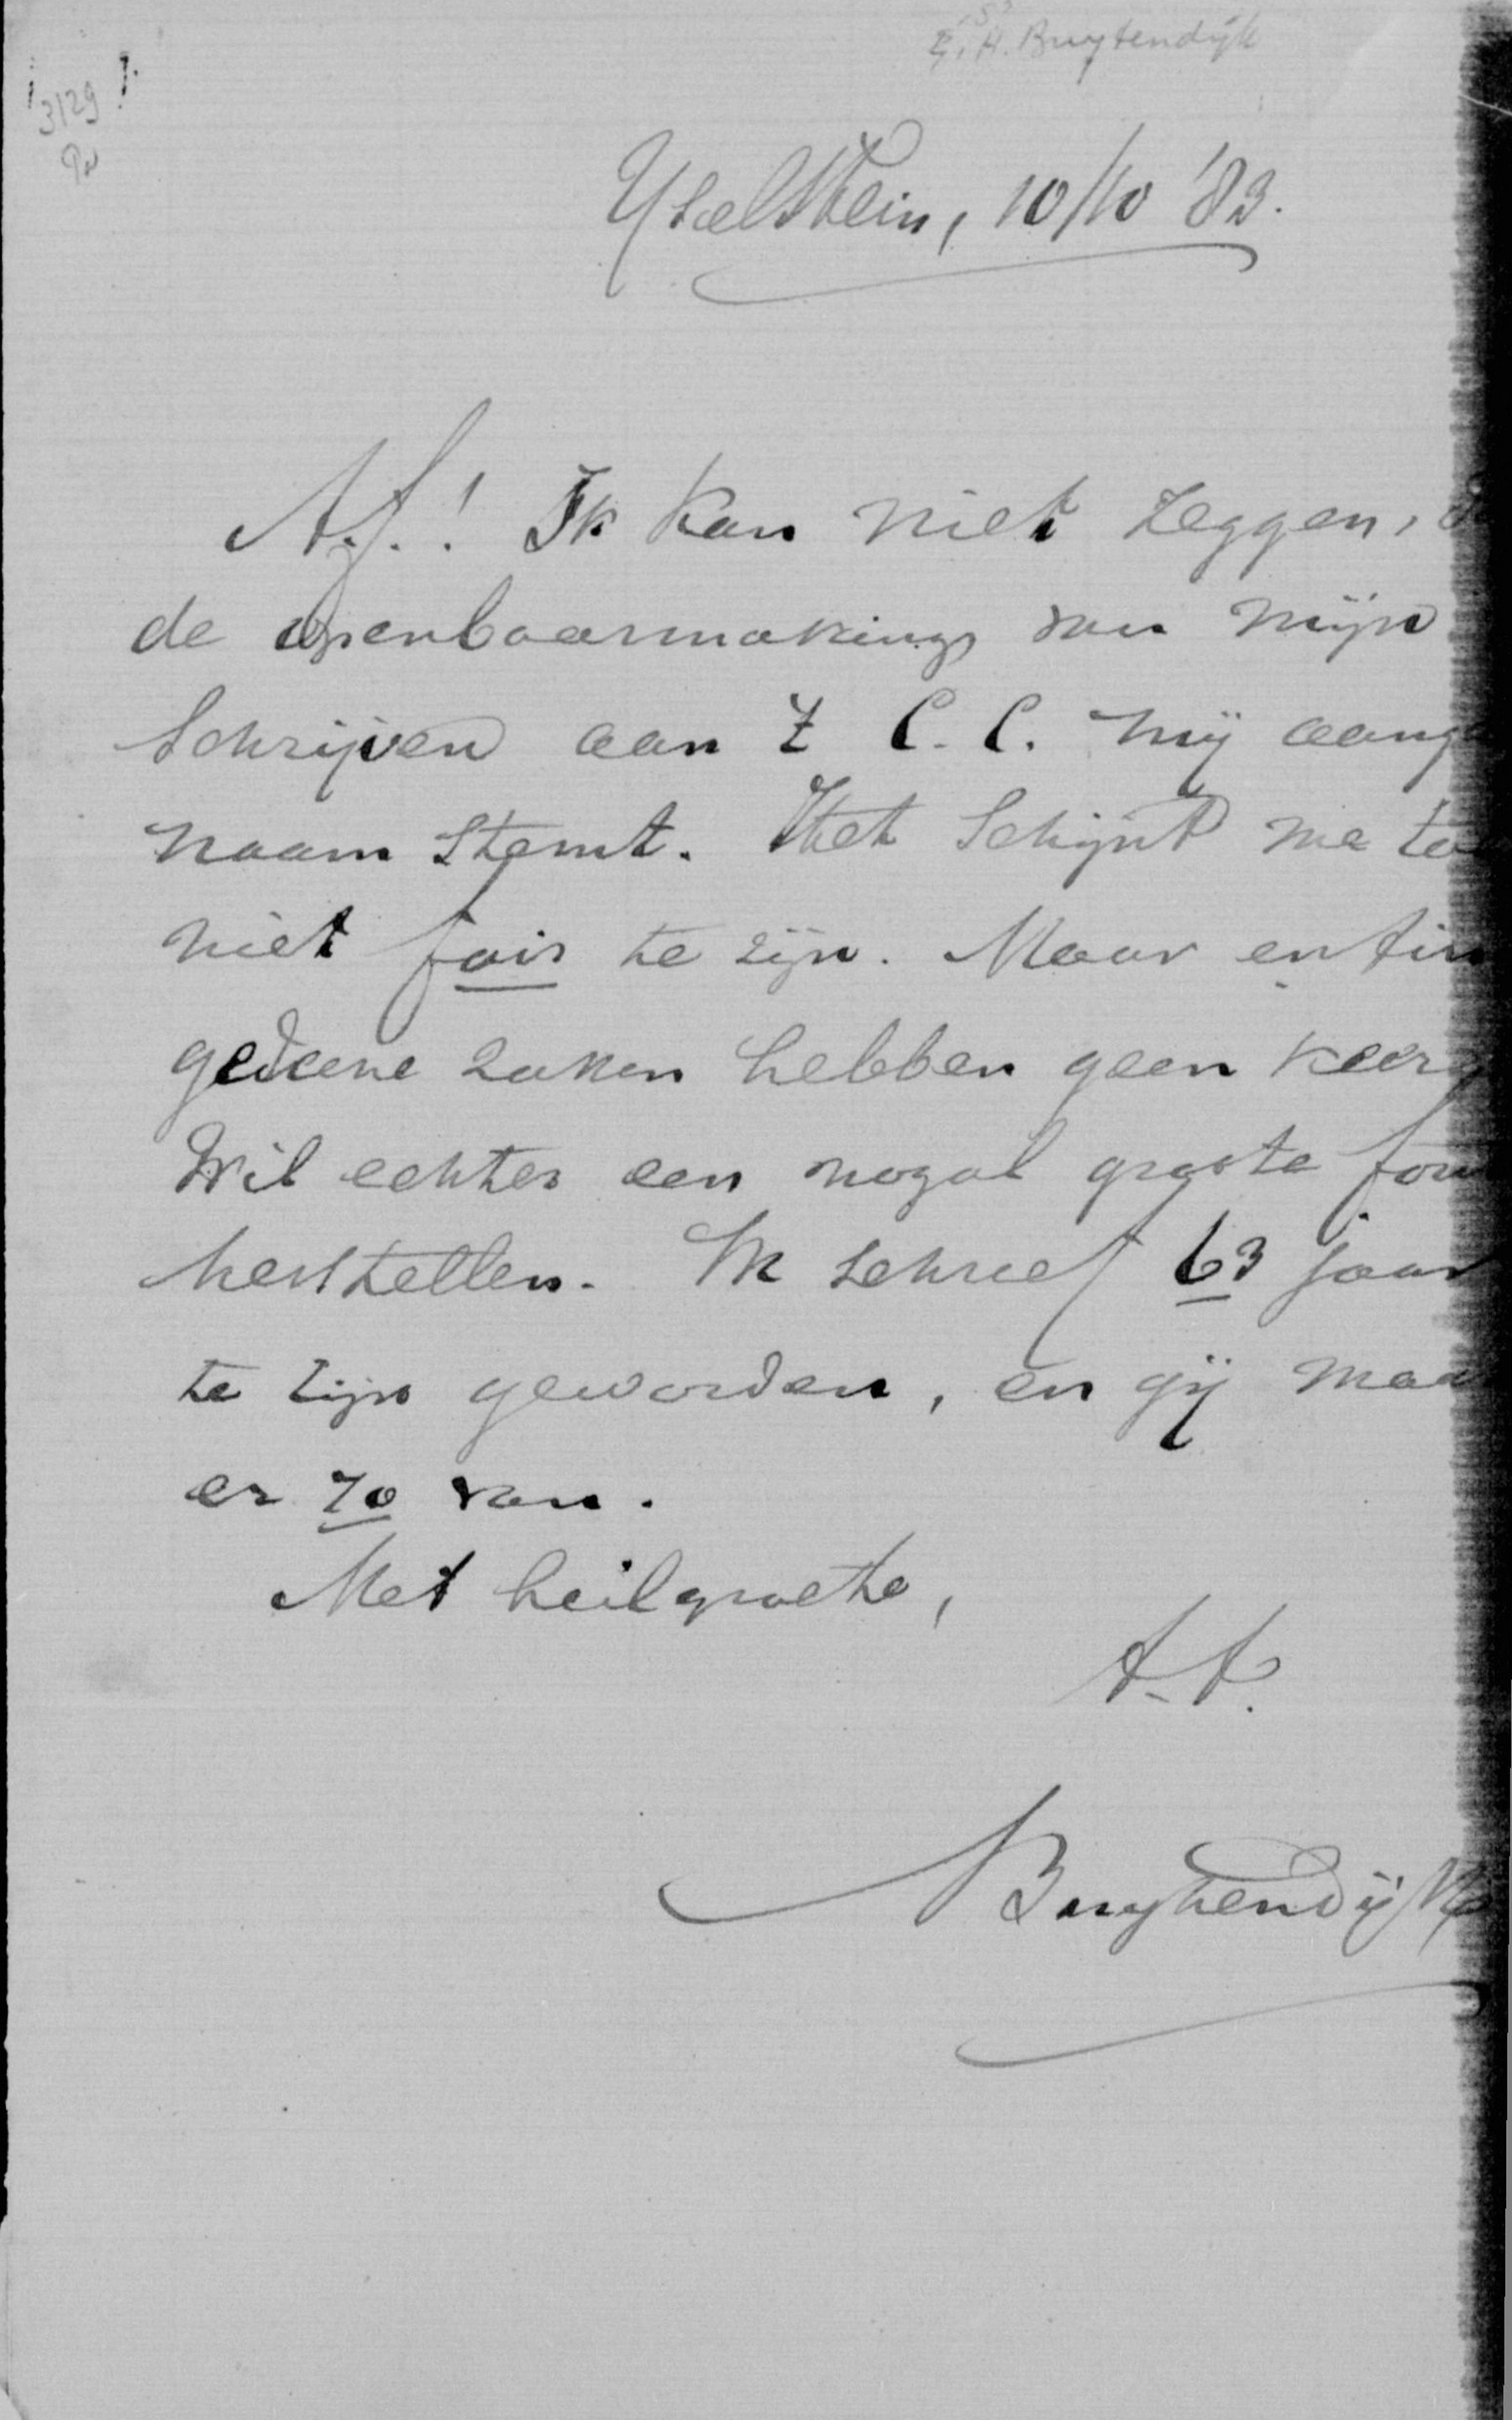 S. H. Buytendyk
3129
Yselstein, 10/10 '83.
A.f.! Ik kan niet zeggen,
de openbaarmaking van mijn
schrijven aan Z C. C. mij aange
naam stemt. Het schijnt me toe
niet fair te zijn. Maar enfin
gedene zaken hebben geen keer,
Wil echter een nogal groote fou
herstellen. Ik schreef 63 jaar
te zijn geworden, en gij maa
er 70 van.
Met heilgroete,
t.t.
Buytendijk